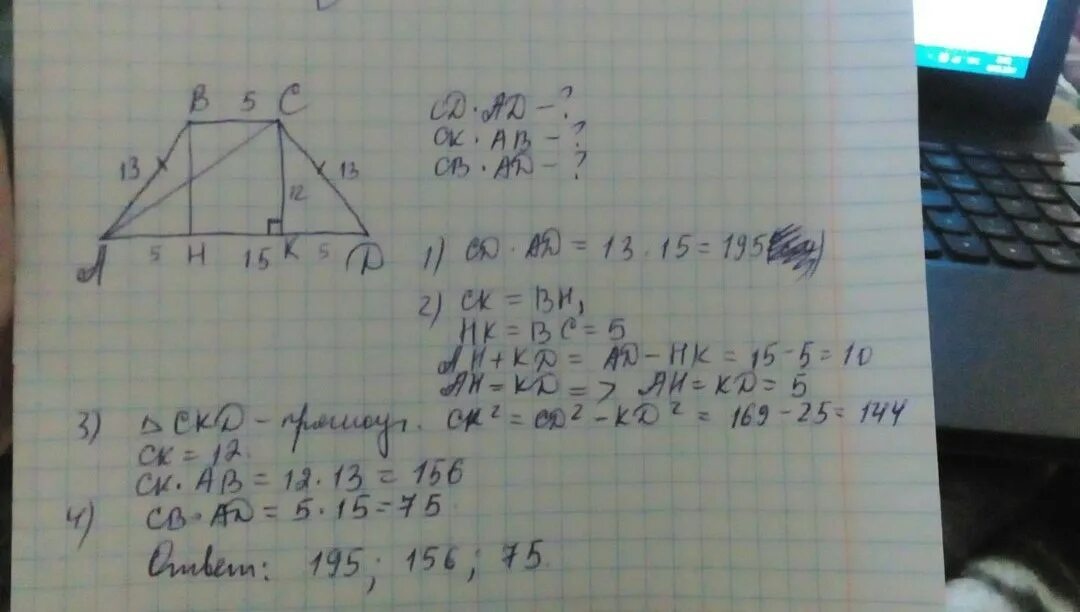 B 5 C
13 13
12
A 5 H 15 K 5 D
CD · AD - ?
CK · AB - ?
CB · AD - ?
1) CD · AD = 13 · 15 = 195
2) CK = BH,
HK = BC = 5
AH + KD = AD - HK = 15 - 5 = 10
AH = KD => AH = KD = 5
3) △ CKD - прямоуг. CK² = CD² - KD² = 169 - 25 = 144
CK = 12.
CK · AB = 12 · 13 = 156
4) CB · AD = 5 · 15 = 75.
Ответ: 195; 156; 75.